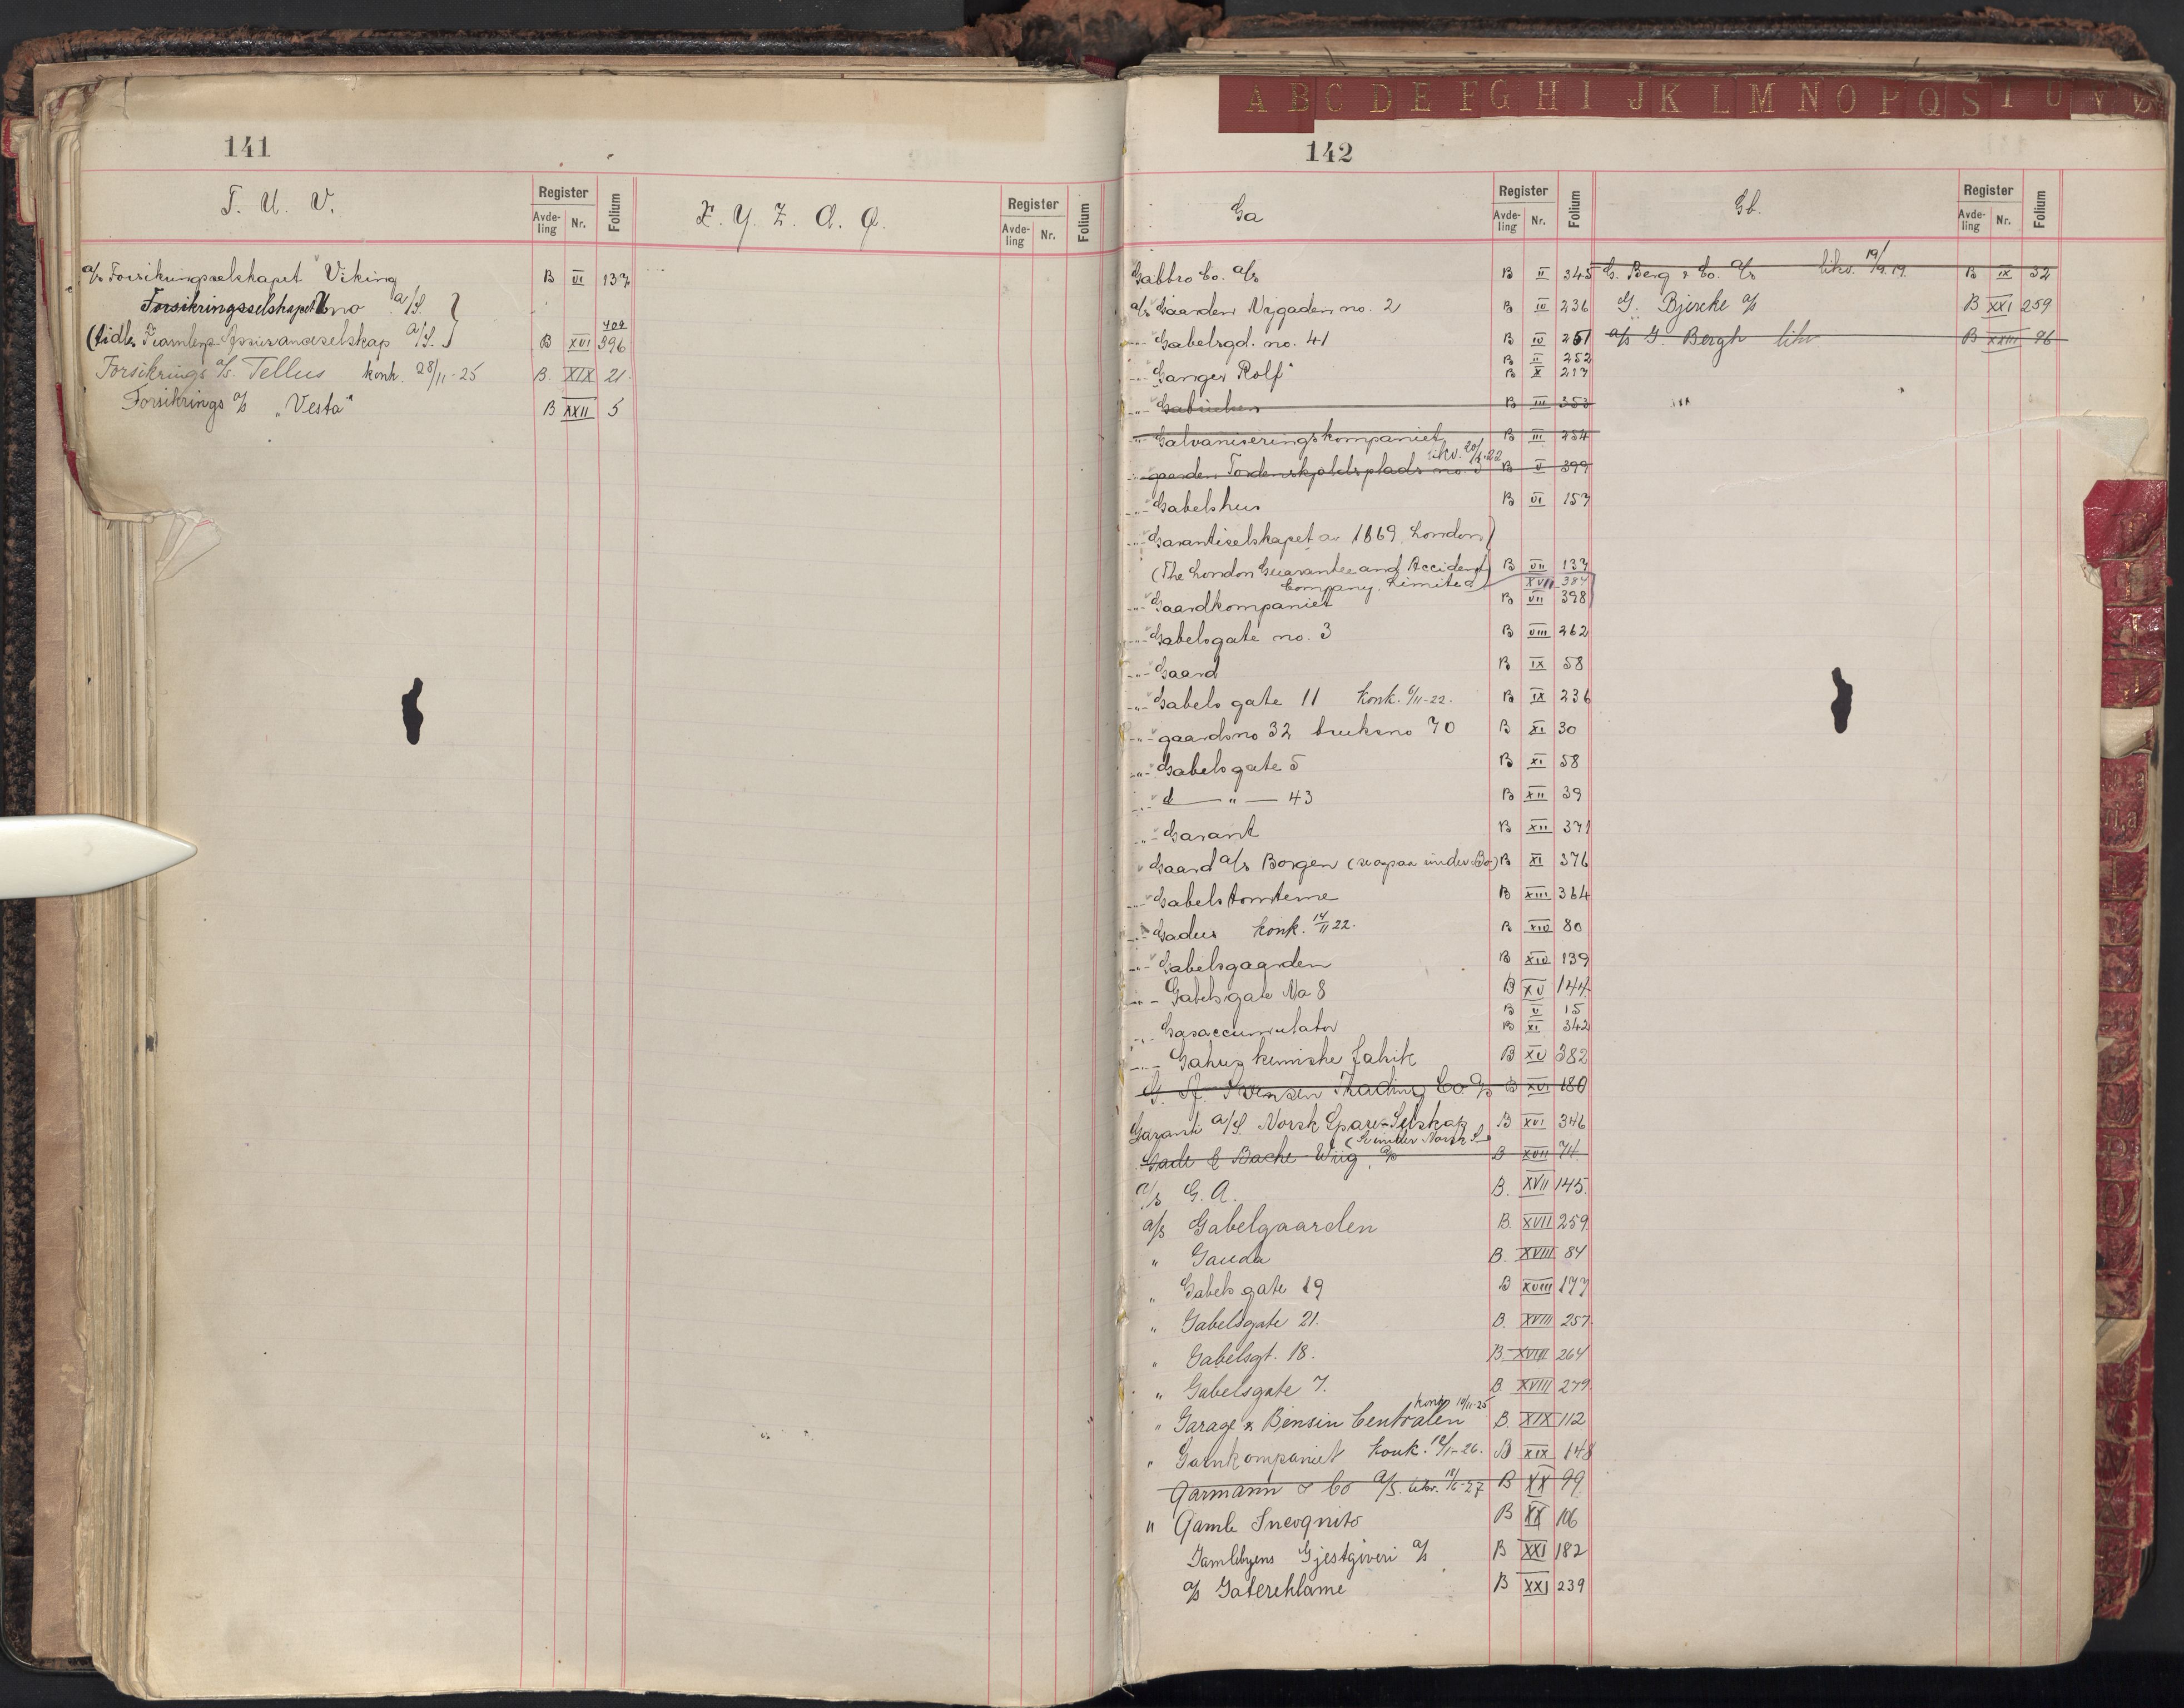 141
T. U. V.
Register
Avde-
ling
Nr.
Folium
X. Y. Z. Æ. Ø.
Register
Avde-
ling
Nr.
Folium
a/s Forsikringsselskapet "Viking B VI 137
Forsikringsselskapet Uno a/S.
(tidl. Framters Assuranceselskap a/S.) B XVI 396 409
Forsikrings a/s. Tellus konk. 28/11-25 B. XIX 21
Forsikrings a/s "Vesta" B XXII 5
A B C D E F G H I J K L M N O P Q S T U V Ø
142
Ga
Register
Avde-
ling
Nr.
Folium
Gb.
Register
Avde-
ling
Nr.
Folium
Gabbro Co. a/s B II 345
a/s Gaarden Nygaden no. 2 B IV 236
-"- Gabelsgd. no. 41 B IV 251
B II 252
-"- "Ganger Rolf" B X 217
-"- B III 353
-"- Galvaniseringskompaniet B III 254
-"- gaarden Tordenskjoldsplads no. 3 likv. 20/1-22 B V 399
-"- Gabelshus B VI 157
-"- Garantiselskapet av 1869, London)
(The London Guarantee and Accident) B VII 137
Company, Limited XVII 384
-"- Gaardkompaniet B VII 398
-"- Gabelsgate no. 3 B VIII 262
-"- Gaard B IX 58
-"- Gabels gate 11 Konk. 6/11-22. B IX 236
-"- gaardsno 32 bruksno 70 B XI 30
-"- Gabels gate 5 B XI 58
-"- d — " — 43 B XII 39
-"- Garant B XII 371
Gaard a/s Borgen (se ogsaa under Bo) B XI 376
-"- Gabelstomterne B XIII 364
-"- Gadus Konk. 14/11 22. B XIV 80
-"- Gabelsgaarden B XIV 139
-"- Gabelsgate No 8 B XV 144
B V 15
-"- Gasaccumulator B XI 342
-"- Gahus kemiske Fabrik B XV 382
G. A. Svensen Trading Co a/s B XVI 180
Garanti a/S Norsk Spare-Selskap B XVI 346
(Se under Norsk S)
Gade & Bache-Wiig, a/s B XVII 74
a/s G. A. B. XVII 145.
a/s Gabelgaarden B. XVII 259
" Gauda B. XVIII 84
" Gabels gate 19 B XVIII 177
" Gabelsgate 21. B. XVIII 257
" Gabelsgt. 18. B. XVIII 264
" Gabelsgate 7. B. XVIII 279.
" Garage & Bensin Centralen konk 19/11-25 B. XIX 112
" Garnkompaniet konk. 12/1-26. B XIX 148
Garmann & Co a/s. likv. 18/6-27 B XX 99
" Gamle Incognito B XX 106
Gamlebyens Gjestgiveri a/s B XXI 182
a/s Gatereklame B XXI 239
G. Berg & Co. a/s likv. 19/9.19. B IX 32
G. Bjercke a/s B XXI 259
a/s G. Bergh likv B XXIII 96